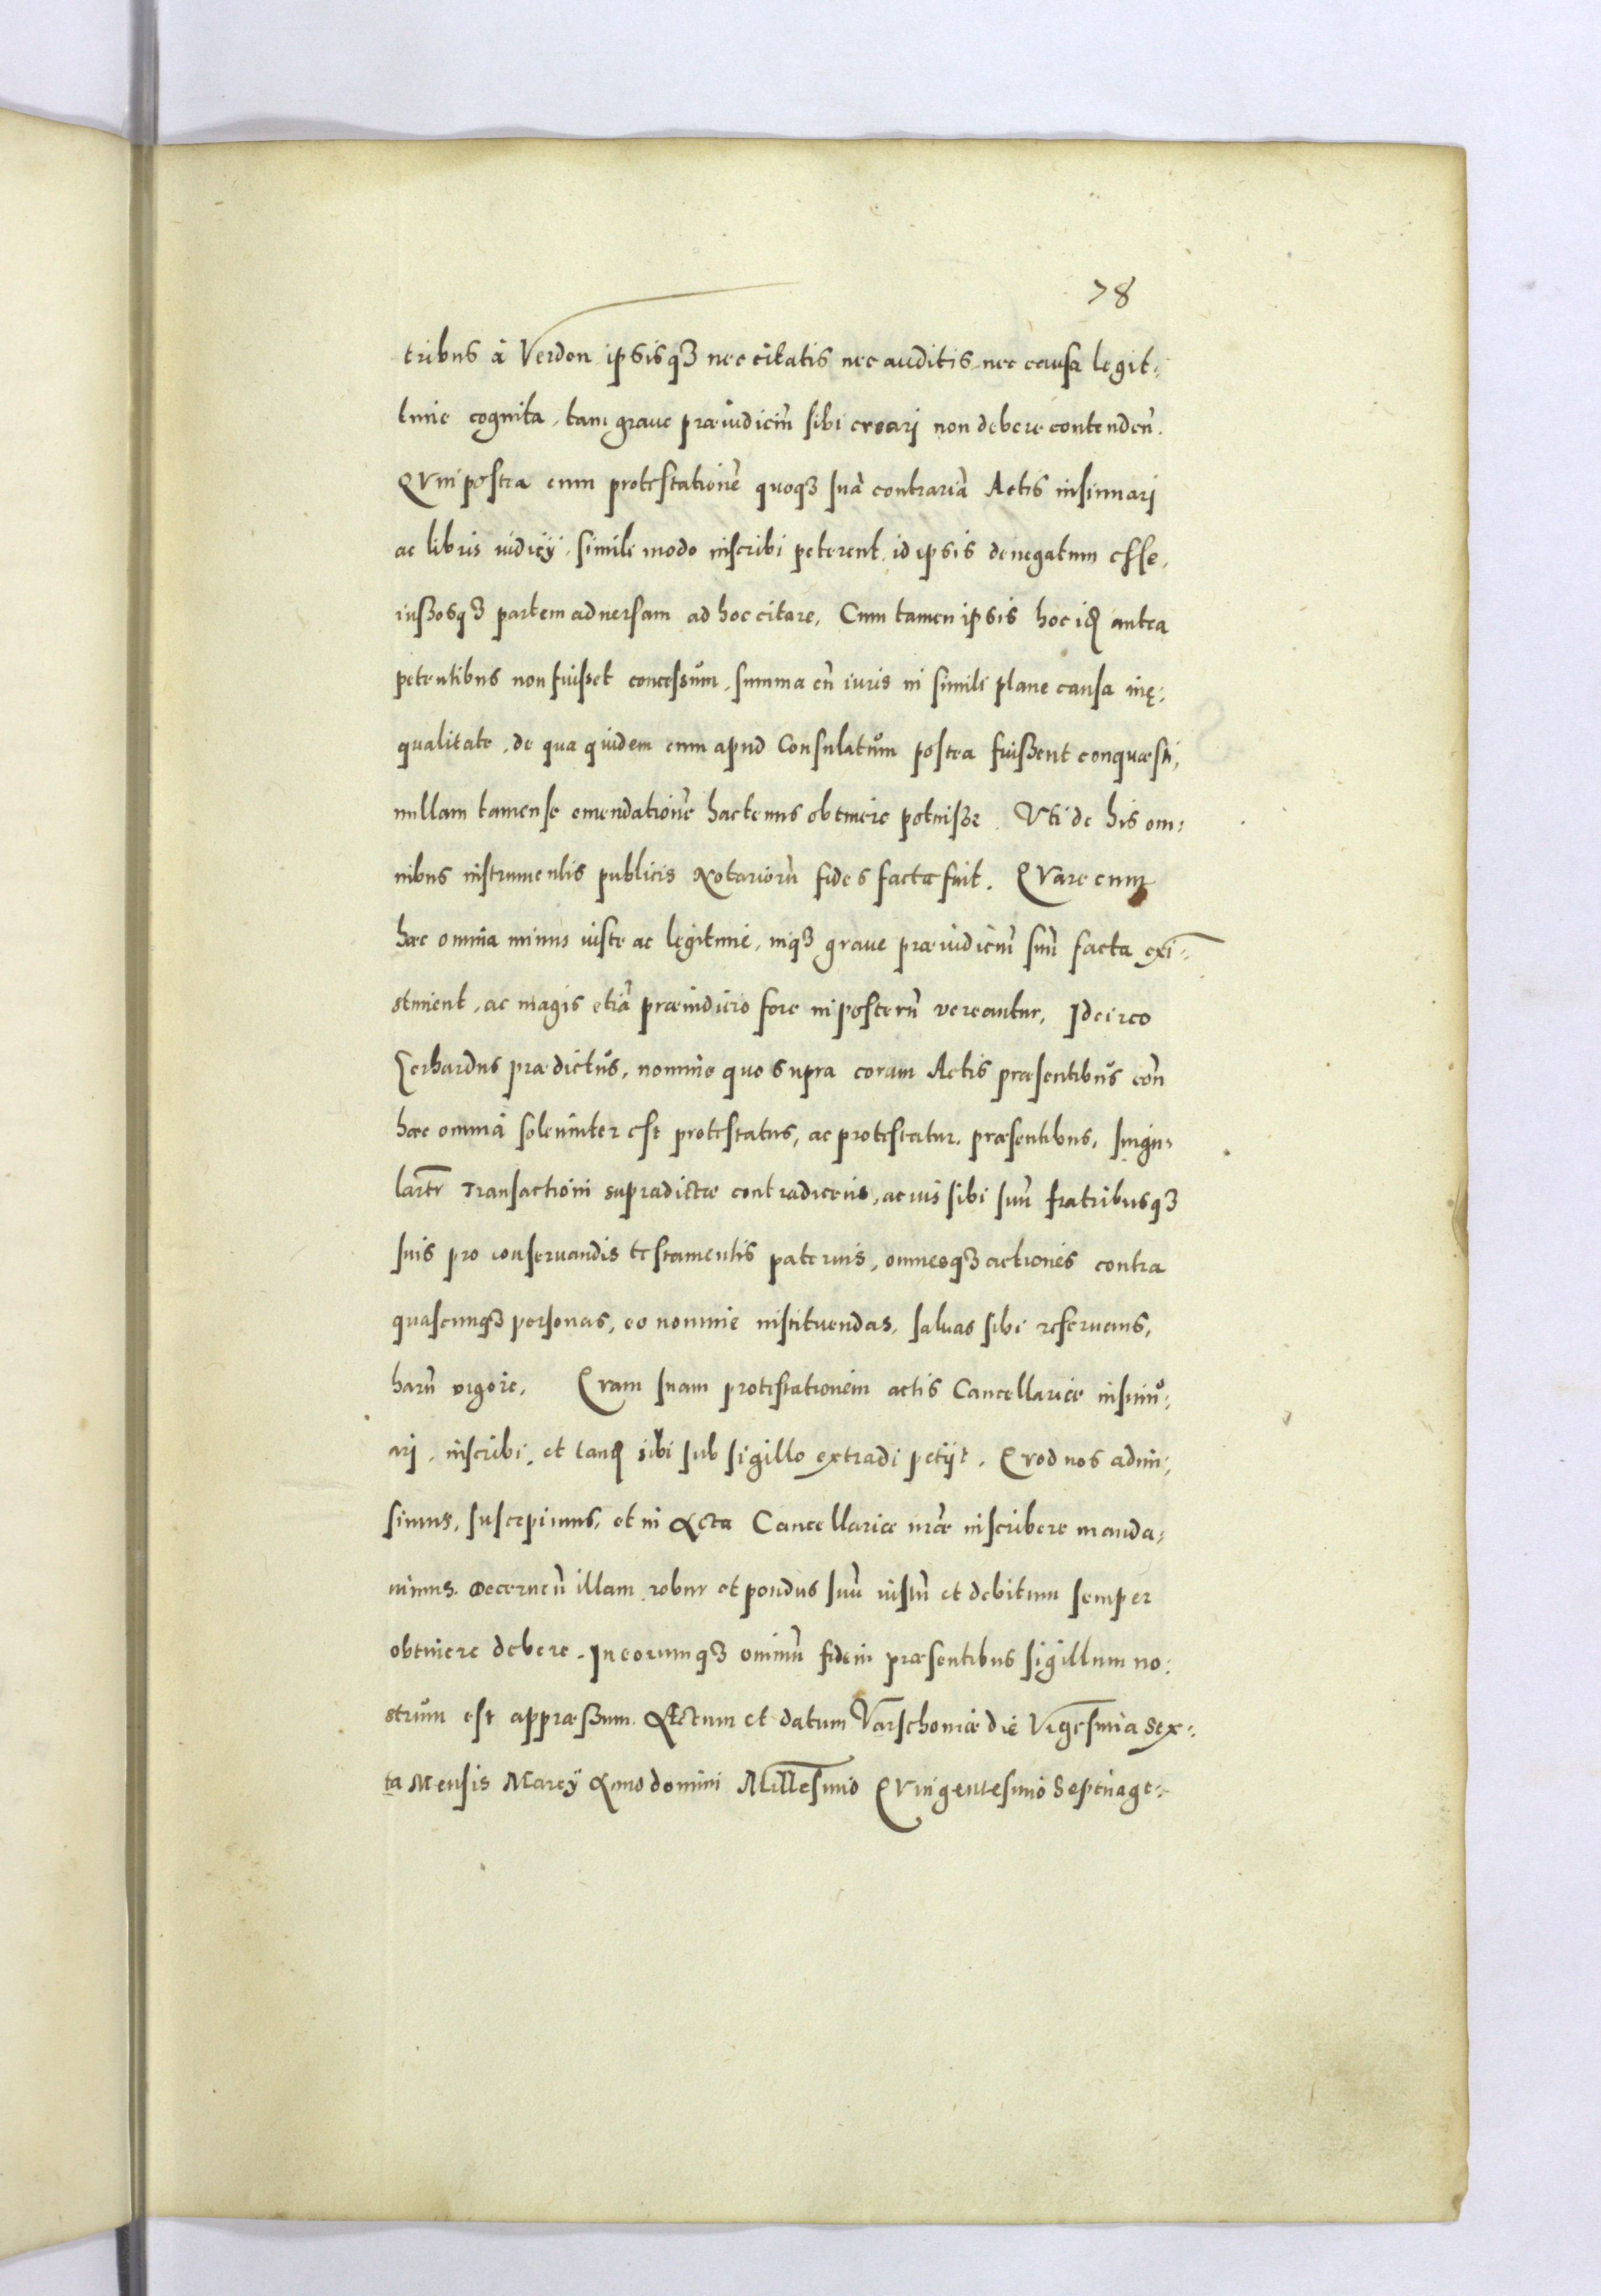 78
tribus à Verden ipsisqꝫ nec citatis nec auditis nec causa legit:
time cognita, tam graue præiudiciũ sibi creari non debere contendeñ.
Qui postea cum protestationẽ quoqꝫ suã contrariã Actis insinuarj
ac libris iudicÿ, simili modo inscribi peterent, id ipsis denegatum esse,
iussosqꝫ partem aduersam ad hoc citare, Cum tamen ipsis hoc idꝫ antea
petentibus non fuisset concessũm, summa cũ iuris in simili plane causa inę:
qualitate, de qua quidem cum apud Consulatũm postea fuissent conquæsti,
nullam tamen se emendationẽ hactenus obtinere potuisse. Vti de his om:
nibus instrumentis publicis Notariorũ fides facta fuit. Quare cum
hæc omnia minus iuste ac legitime, inqꝫ graue præiudiciũ suũ facta exi:
stiment, ac magis etiã præiudicio fore in posterũ vereantur, Idcirco
Gerhardus prædictus, nomine quo supra coram Actis præsentibus coñ
hæc omnia solenniter est protestatus, ac protestatur præsentibus, singu:
larĩr Transactioni supradictæ contradicens, ac ius sibi suũ fratribusqꝫ
suis pro conseruandis testamentis paternis, omnesqꝫ actiones contra
quascunqꝫ personas, eo nomine instituendas, saluas sibi reseruans,
harũ vigore. Quam suam protestationem actis Cancellariæ insinu:
arj, inscribi, et tandꝫ sibi sub sigillo extradi petijt. Quod nos admi:
simus, suscepimus, et in Acta Cancellariæ nr̃æ inscribere manda:
uimus. Decerneñ illam robur et pondus suũ iustũ et debitum semper
obtinere debere. In eorumqꝫ omniũ fidem præsentibus sigillum no:
strum est appræssum. Actum et datum Varschouiæ die Vigesima Sex:
ta Mensis Marcÿ Anno domini Millesimo Quingentesimo Septuage: